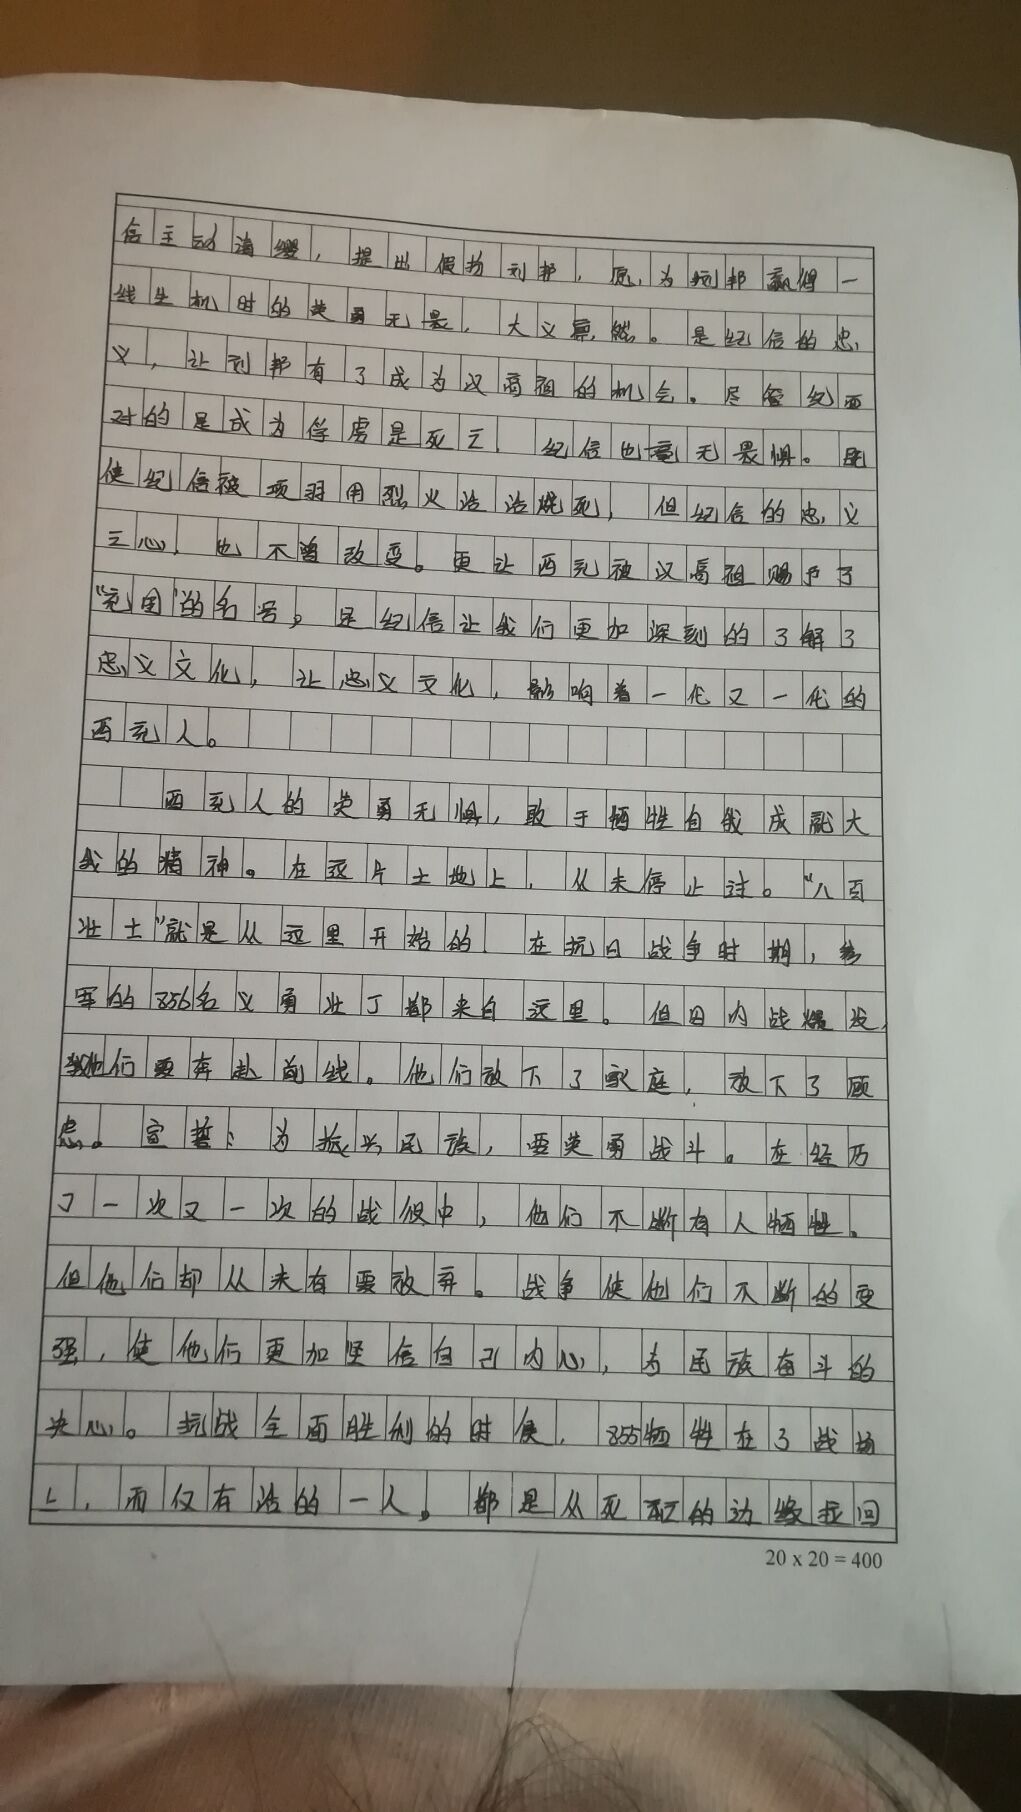 信主动请缨，提出假扮刘邦，愿为刘邦赢得一
线生机时的英勇无畏，大义禀然。是纪信的忠
义，让刘邦有了成为汉高祖的机会。尽管纪面
对的是成为俘虏是死亡，纪信也毫无畏惧。即
使纪信被项羽用烈火活活烧死，但纪信的忠义
之心，也不曾改变。更让西充被汉高祖赐予了
“充国”的名号。是纪信让我们更加深刻的了解了
忠义文化，让忠义文化，影响着一代又一代的
西充人。
西充人的英勇无惧，敢于牺牲自我成就大
我的精神。在这片土地上，从未停止过。“八百
壮士”就是从这里开始的，在抗日战争时期，
军的856名义勇壮丁都来自这里。但因内战爆发，
他们要奔赴前线。他们放下了家庭，放下了顾
虑。宣誓：为振兴民族，要英勇战斗。在经历
了一次又一次的战役中，他们不断有人牺牲。
但他们却从未有要放弃。战争使他们不断的变
强，使他们更加坚信自己内心，为民族奋斗的
决心。抗战全面胜利的时候，855牺牲在了战场
上，而仅有活的一人。都是从死的边缘拉回
20 x 20 = 400